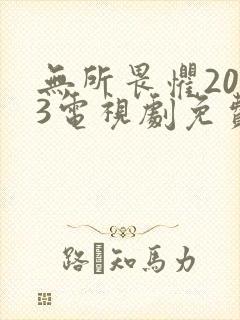 無所畏懼20
3電視劇免費
路 知馬力